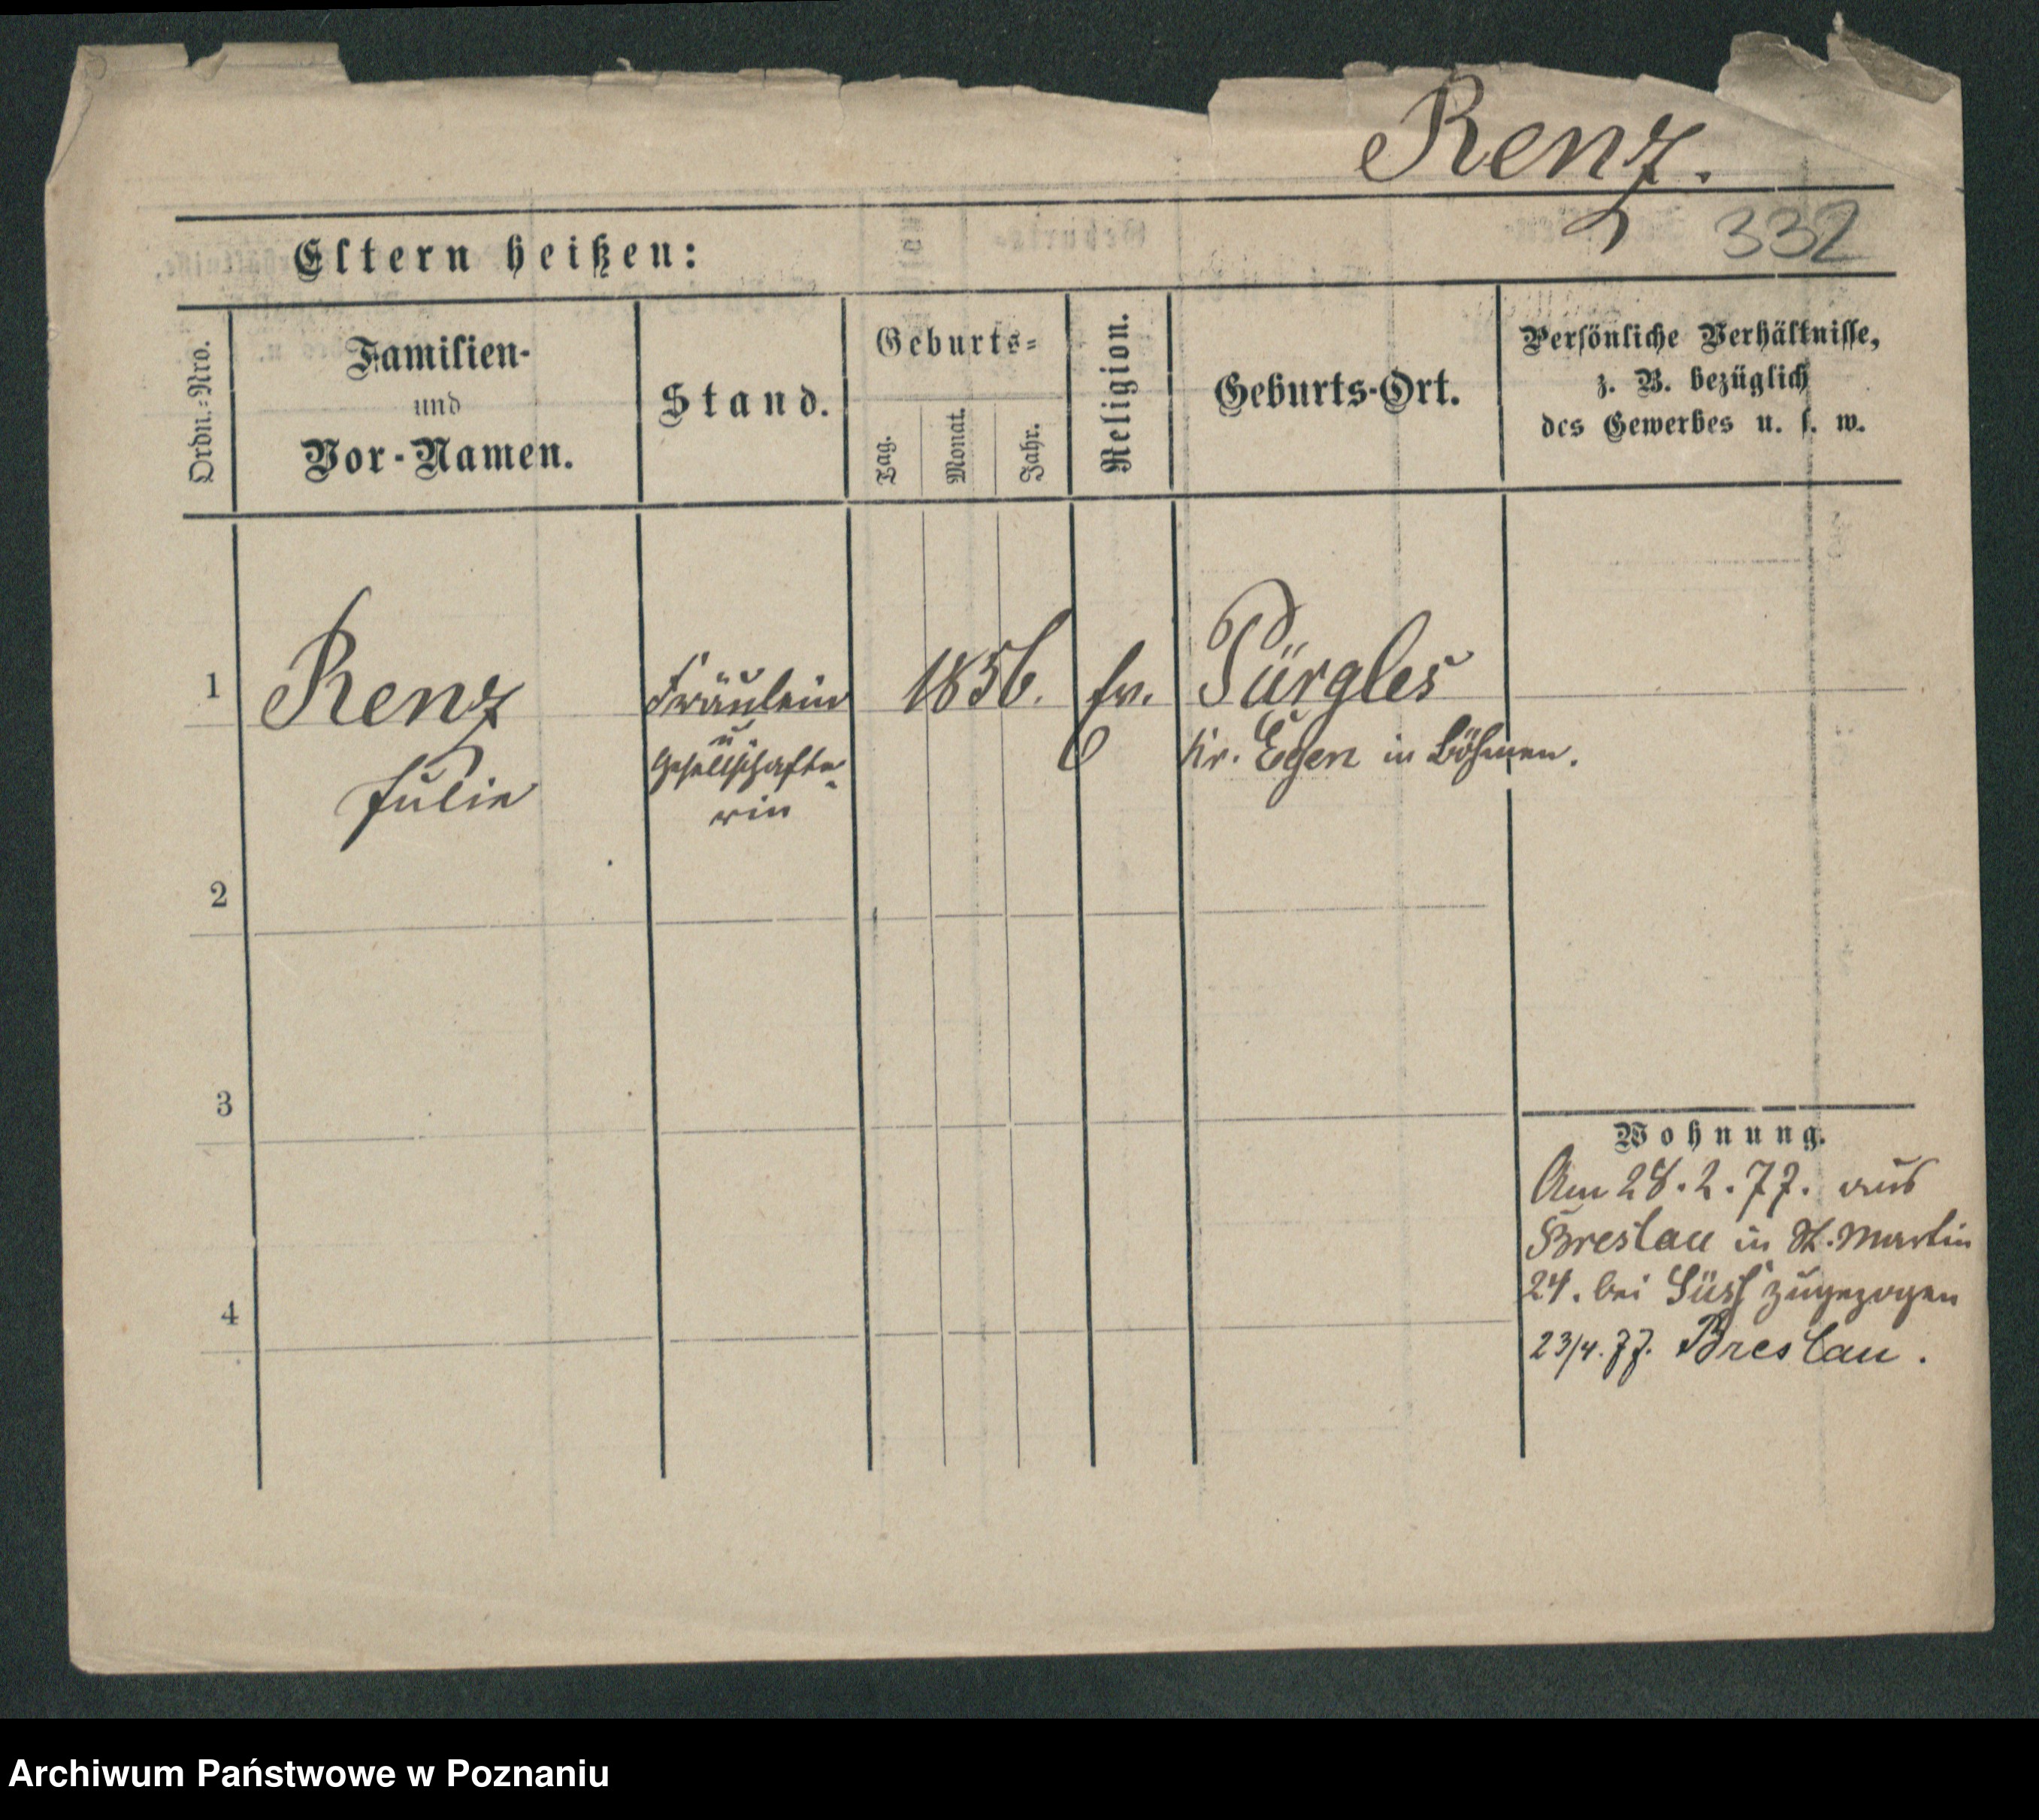 Renz.
332
Eltern heißen:
Ordn.-Nro.
Familien-
und
Vor-Namen.
Stand.
Geburts-
Tag.
Monat.
Jahr.
Religion.
Geburts-Ort.
Persönliche Verhältnisse,
z. B. bezüglich
des Gewerbes u. s. w.
1
Renz
Julie
Fräulein
u.
Gesellschafte-
rin
1856.
Pürgles
Kr. Eger in Böhmen.
2
3
4
Wohnung.
Am 28.2.77. aus
Breslau in St. Martin
24. bei Süss zugezogen
23/4.77. Breslau.
Archiwum Państwowe w Poznaniu